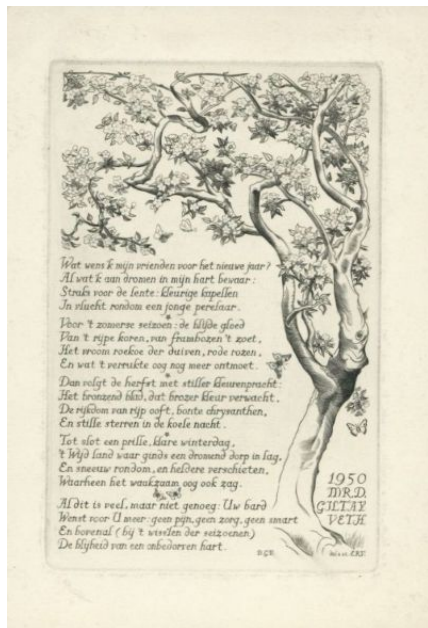 Wat wens 'k mijn vrienden voor het nieuwe jaar?
Al wat 'k aan dromen in mijn hart bewaar:
Straks voor de lente: kleurige kapellen
In vlucht rondom een jonge perelaar.
Voor 't zomerse seizoen: de blijde gloed
Van 't rijpe koren, van frambozen 't zoet,
Het vroom roekoe der duiven, rode rozen,
En wat 't verrukte oog nog meer ontmoet.
Dan volgt de herfst met stiller kleurenpracht:
Het bronzend blad, dat brozer kleur verwacht,
De rijkdom van rijp ooft, bonte chrysanthen,
En stille sterren in de koele nacht.
Tot slot een prille, klare winterdag,
't Wijd land waar ginds een dromend dorp in lag,
En sneeuw rondom, en heldere verschieten,
Waarheen het waakzaam oog ook zag.
Al dit is veel, maar niet genoeg: Uw bard
Wenst voor U meer: geen pijn, geen zorg, geen smart
En bovenal (bij 't wisselen der seizoenen)
De blijheid van een onbedorven hart.
1950
MR.D.
GILTAY
VETH
D.G.V.